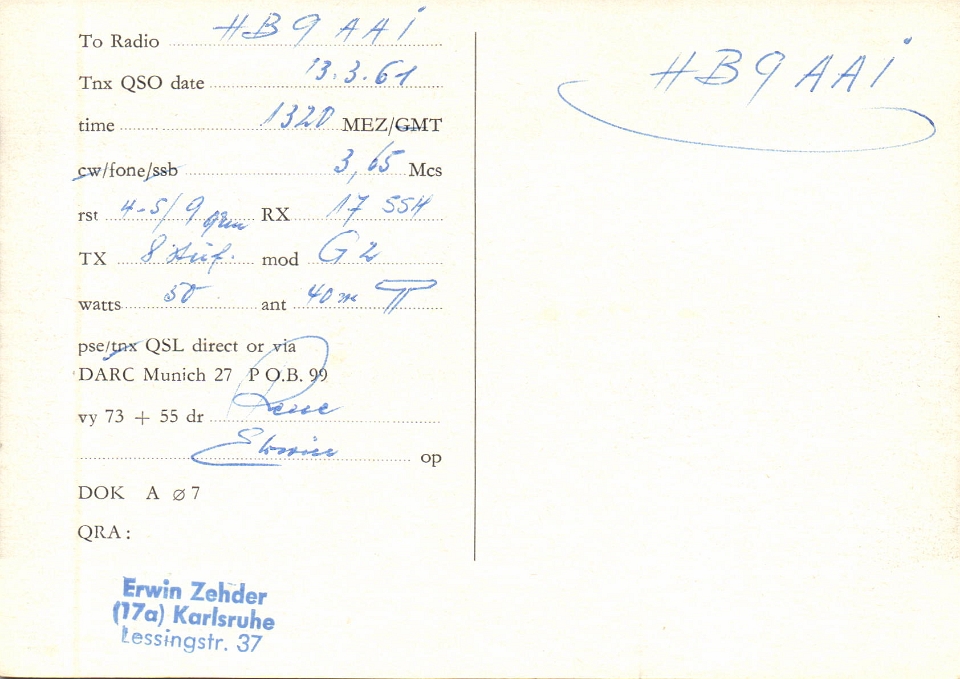 To Radio HB9AAI
Tnx QSO date 13.3.61
time 1320 MEZ/GMT
cw/fone/ssb 3,65 Mcs
rst 4-5/9 qrm RX 17 SSH
TX 8 Stuf. mod G2
watts 50 ant 40m
pse/tnx QSL direct or via
DARC Munich 27 P O.B. 99
vy 73 + 55 dr Rene
Erwin op
DOK A ø 7
QRA:
Erwin Zehder
(17a) Karlsruhe
Lessingstr. 37
HB9AAI